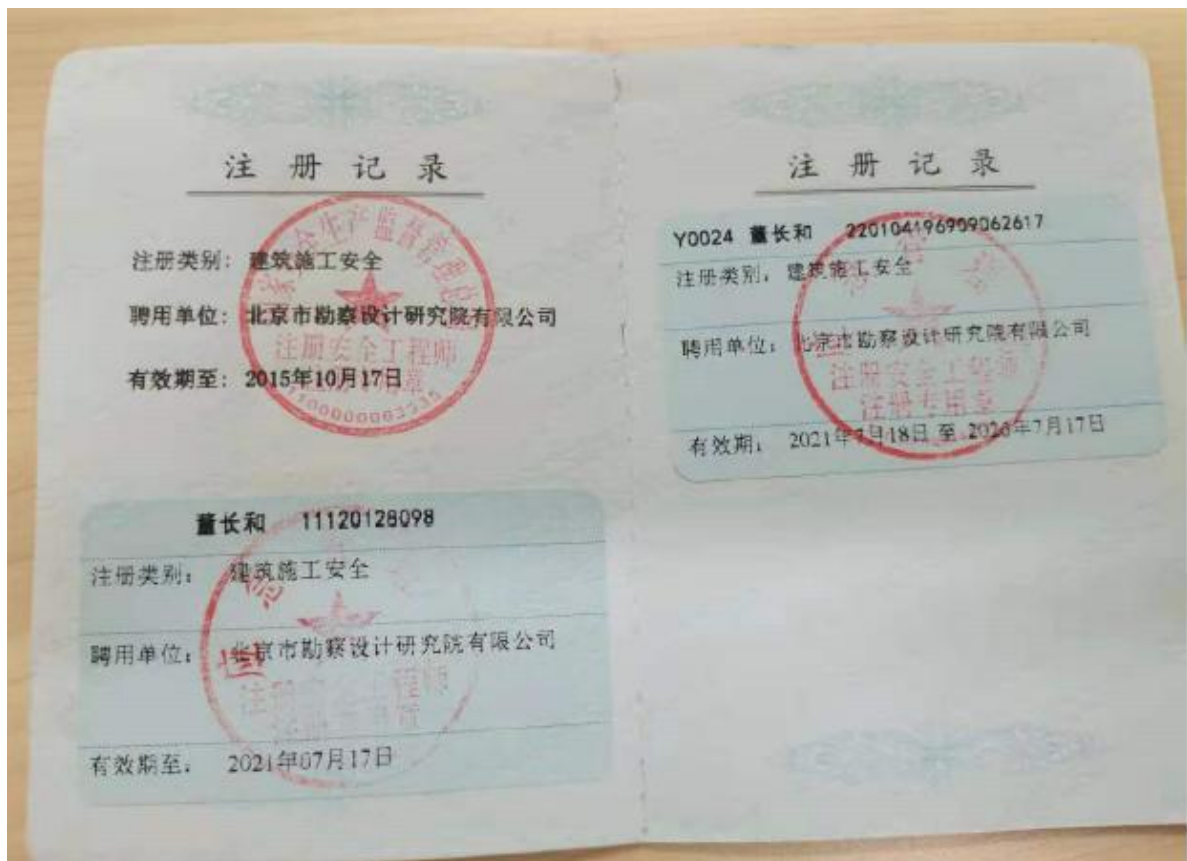 注册记录
注册类别：建筑施工安全
聘用单位：北京市勘察设计研究院有限公司
有效期至：2015年10月17日
注册安全工程师
1100000063335
董长和 11120128098
注册类别：建筑施工安全
聘用单位：北京市勘察设计研究院有限公司
有效期至：2021年07月17日
注册安全工程师
注册记录
Y0024 董长和 220104196909062617
注册类别：建筑施工安全
聘用单位：北京市勘察设计研究院有限公司
有效期：2021年7月18日 至 2026年7月17日
注册安全工程师
注册专用章